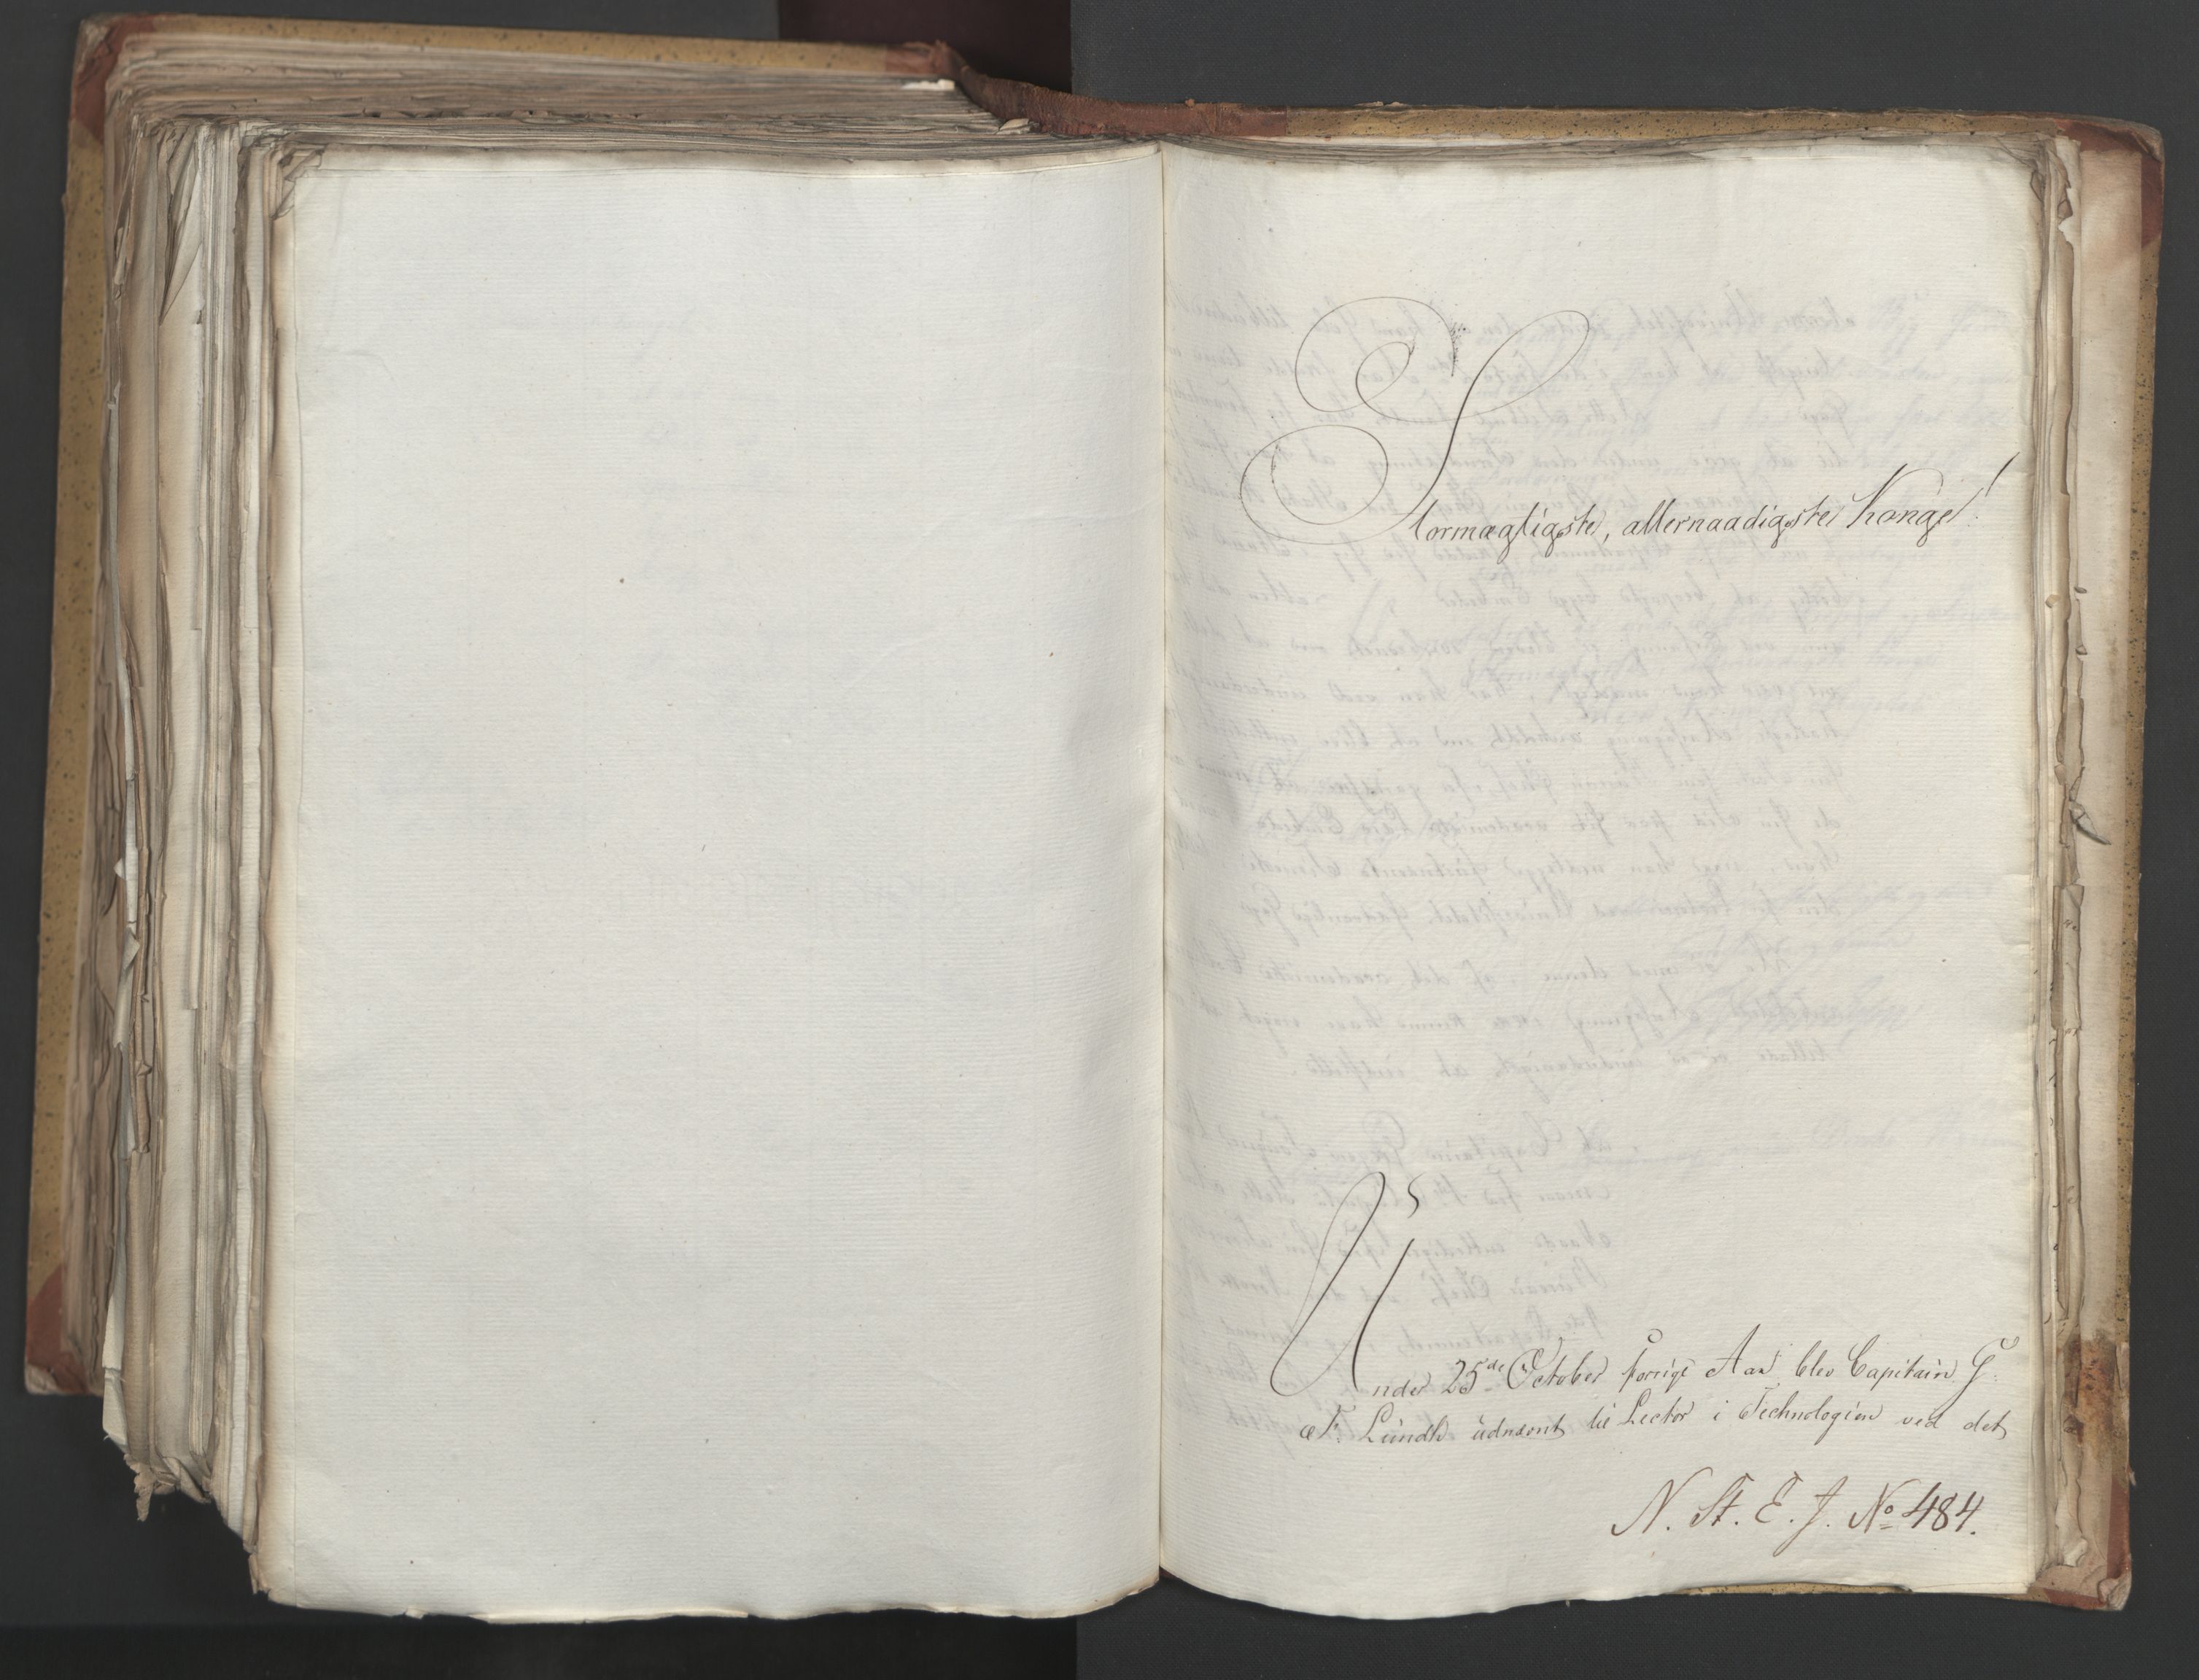 Stormægtigste, allernaadigste Konge!
Under 25de October forrige Aar blev Capitain G.
F. Lundh udnævnt til Lector i Technologien ved det
N. St. E. J. No 484.